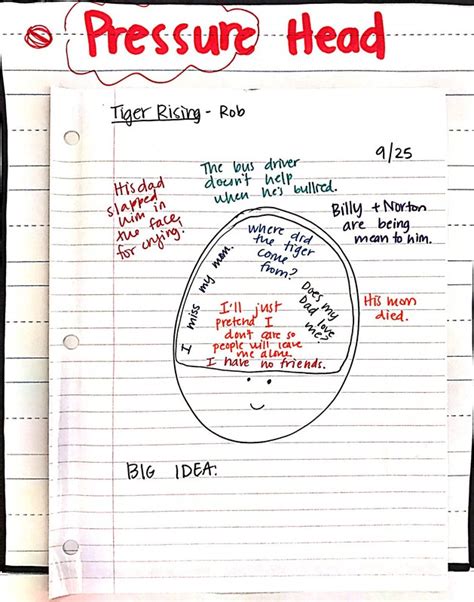 Pressure Head
Tiger Rising - Rob
9/25
The bus driver
doesn't help
when he's bullied.
His dad
slapped
him in
the face,
for crying.
Billy + Norton
are being
mean to him.
I miss my mom.
Where did
the tiger
come
from?
Does my
Dad love
me?
His mom
died.
I'll just
pretend I
don't care so
people will leave
me alone.
I have no friends.
BIG IDEA: